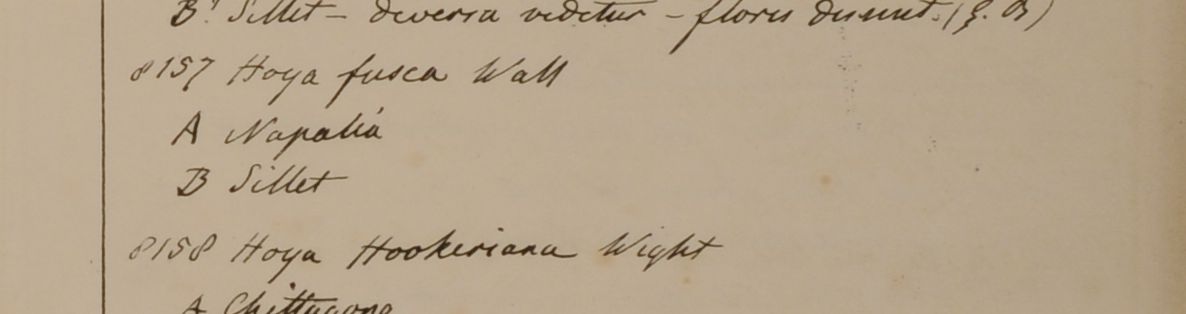 B? Sillet – diversa videtur – flores desunt. (G. B)
8157 Hoya fusca Wall
A Napalia
B Sillet
8158 Hoya Hookeriana Wight
A Chittagong